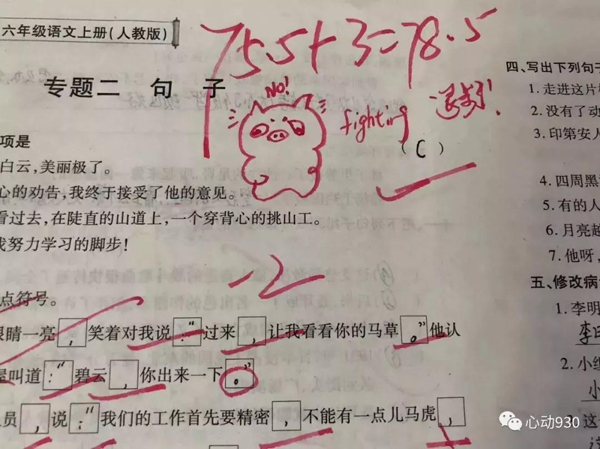 六年级语文上册(人教版)
75.5+3=78.5
专题二 句 子
NO!
fighting
退步了!
项是
(C)
白云,美丽极了。
心的劝告,我终于接受了他的意见。
看过去,在陡直的山道上,一个穿背心的挑山工。
我努力学习的脚步!
-2
点符号。
眼睛一亮,笑着对我说:“过来,让我看看你的马草。”他认
屋叫道:“碧云,你出来一下。”
员,说:“我们的工作首先要精密,不能有一点儿马虎,
四、写出下列句子
1. 走进这片
2. 没有了动
3. 印第安人
4. 四周黑
5. 有的人
6. 月亮越
7. 他呀,
五、修改病
1. 李明
李明
2. 小红
小
3. 这
心动930